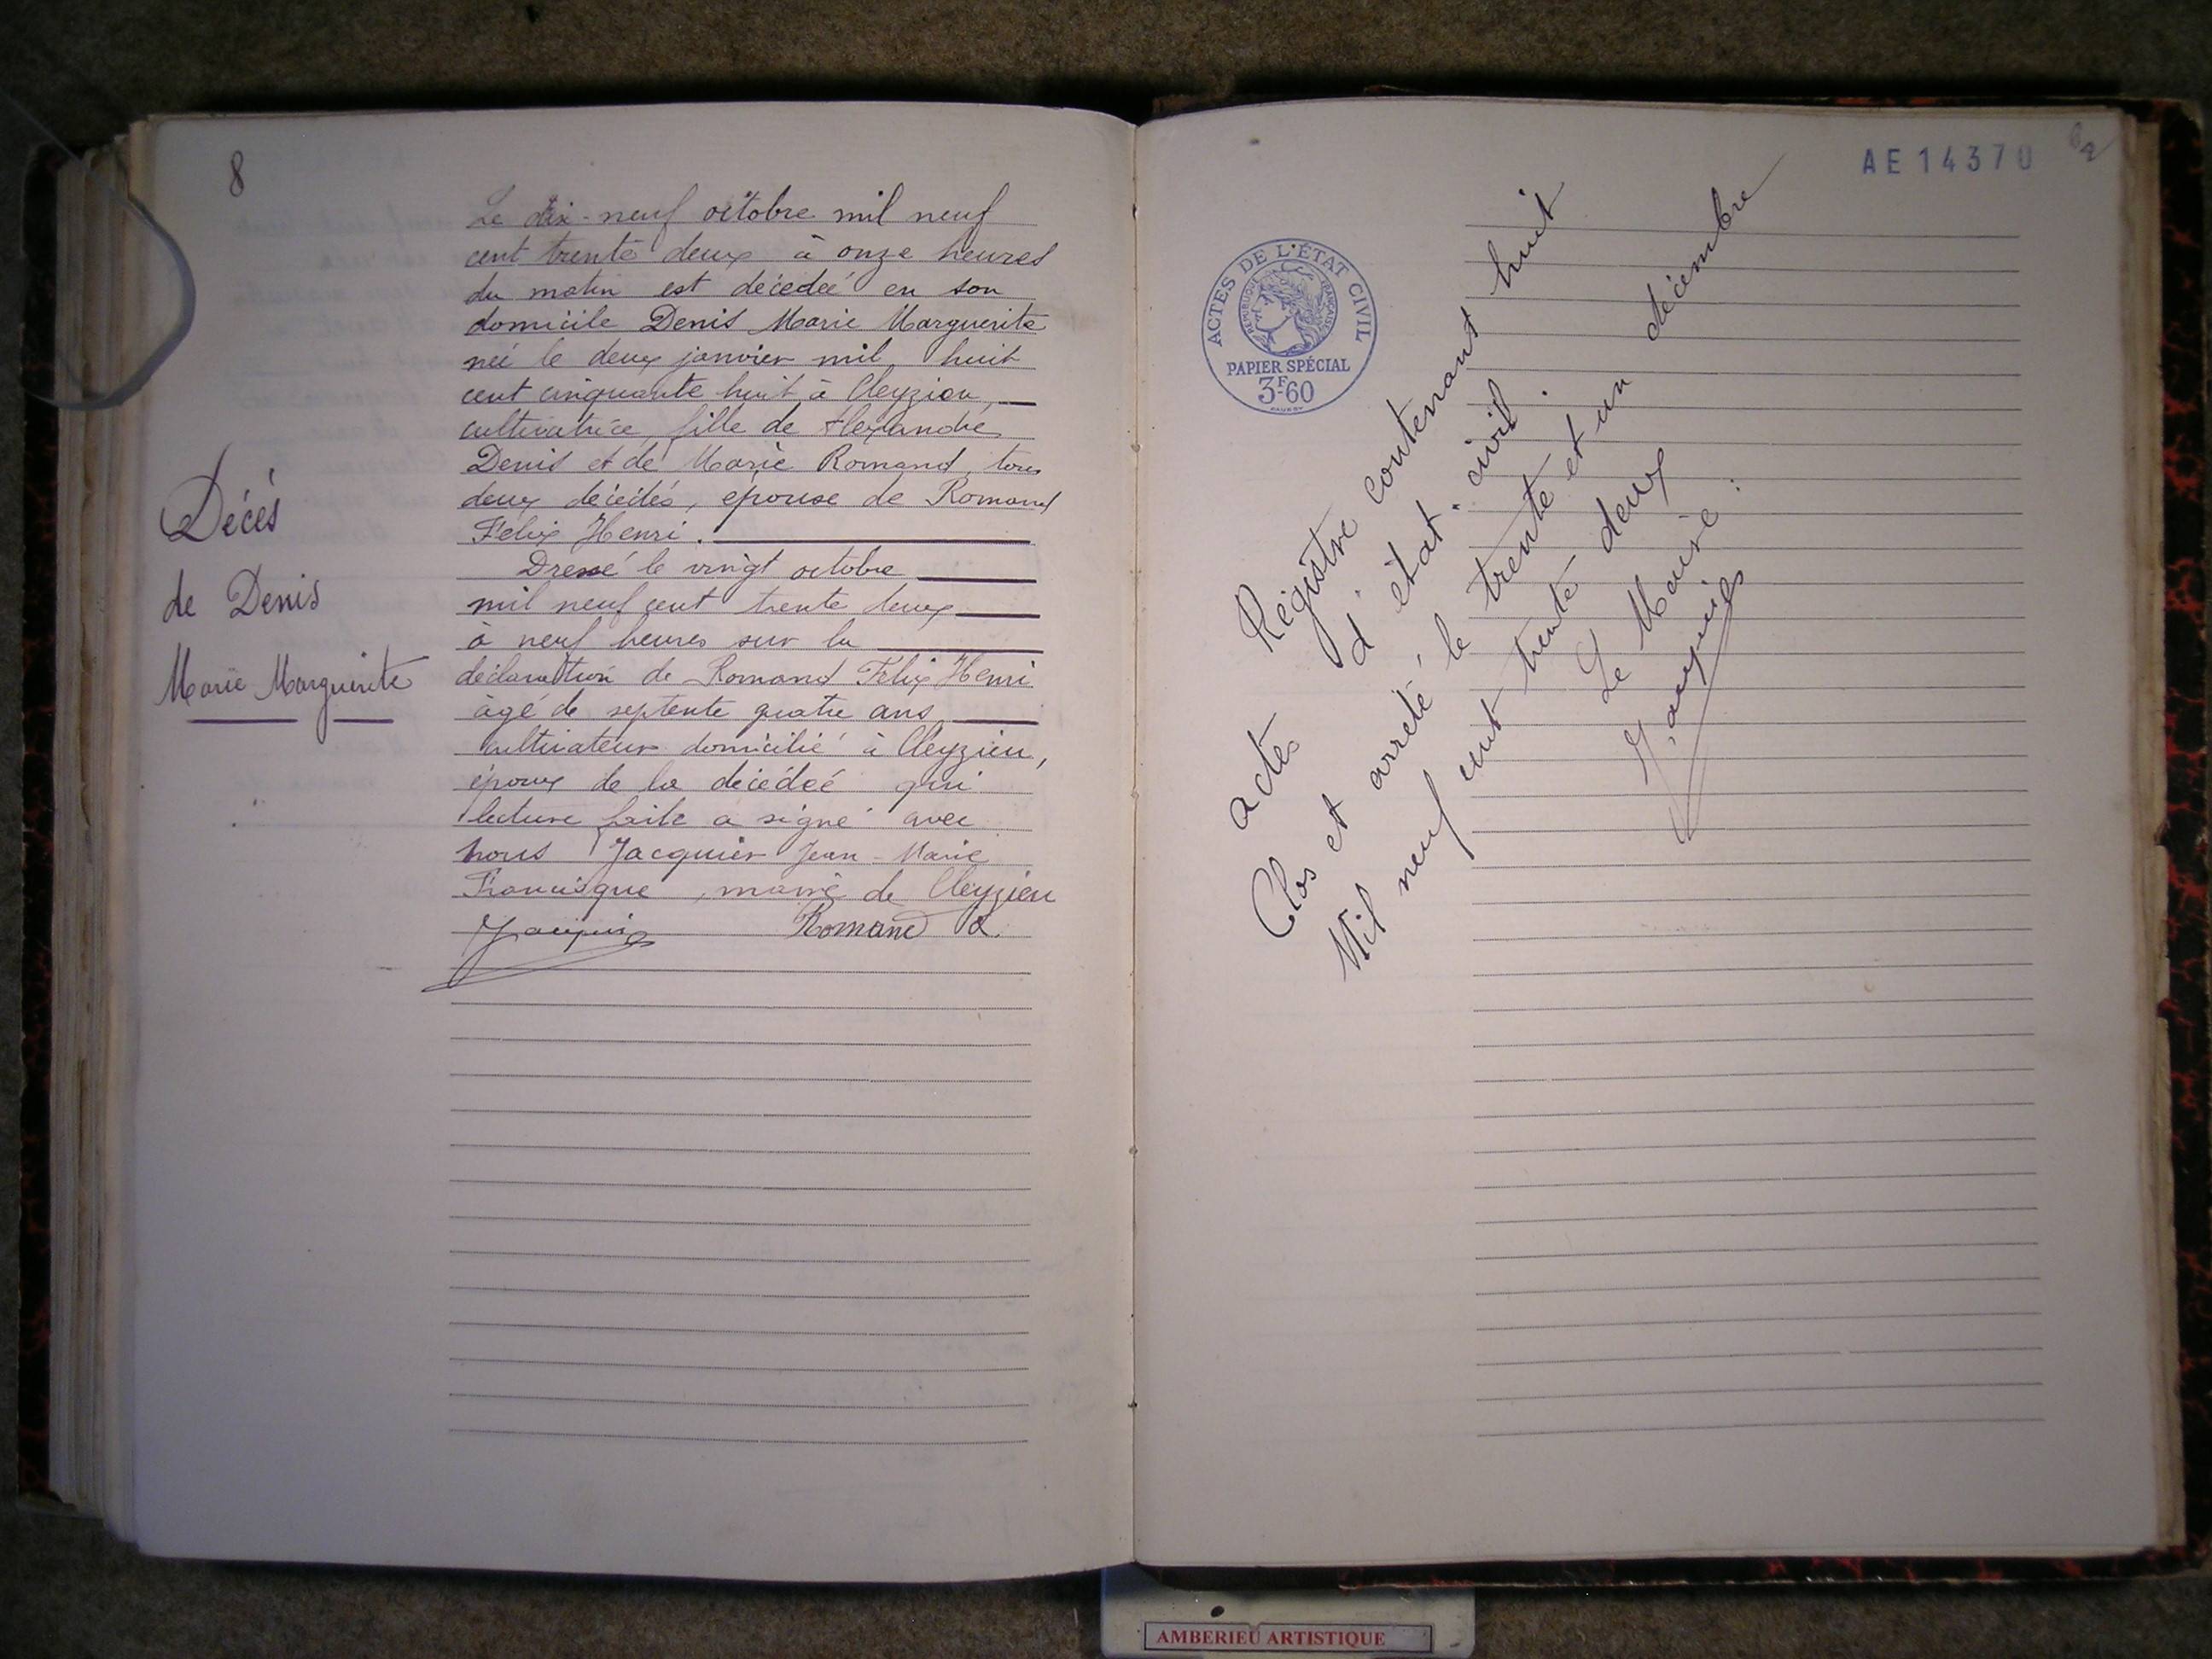 8
Décès
de Denis
Marie Marguerite
Le dix-neuf octobre mil neuf
cent trente deux à onze heures
du matin est décédée en son
domicile Denis Marie Marguerite
née le deux janvier mil huit
cent cinquante huit à Cleyzieu,
cultivatrice, fille de Alexandre
Denis et de Marie Romand, tous
deux décédés, épouse de Romand
Félix Henri.
Dressé le vingt octobre
mil neuf cent trente deux
à neuf heures sur la
déclaration de Romand Félix Henri
âgé de septente quatre ans
cultivateur domicilié à Cleyzieu,
époux de la décédée qui
lecture faite a signé avec
nous Jacquier Jean-Marie
Francisque, maire de Cleyzieu
Jacquier Romand
AE 14370
ACTES DE L'ÉTAT CIVIL
RÉPUBLIQUE FRANÇAISE
PAPIER SPÉCIAL
3F60
Régistre contenant huit
actes d'état civil.
Clos et arrêté le trente et un décembre
Mil neuf cent trente deux
Le Maire.
Jacquier
AMBERIEU ARTISTIQUE